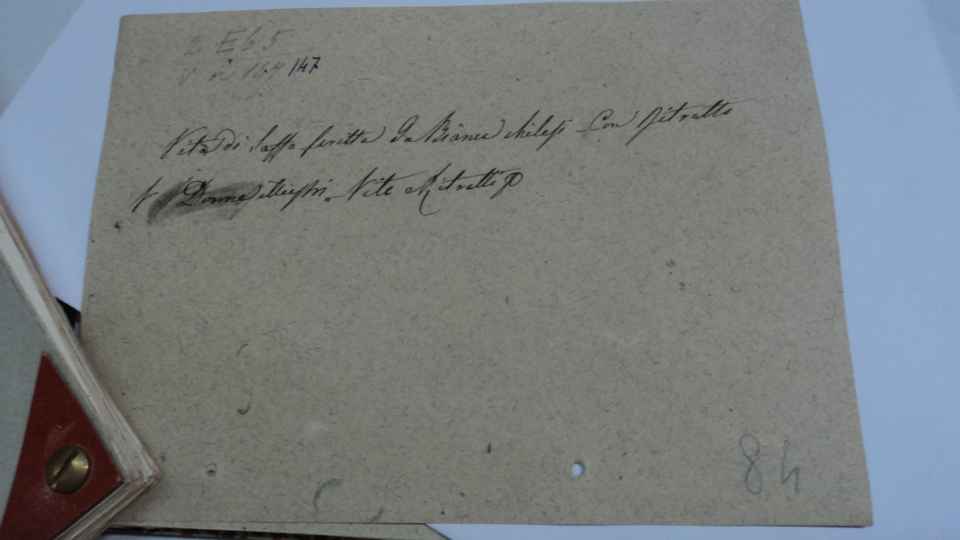 2 E 65
V n 164 147
Vita di Saffo scritta Da Bianca Milesi Con Ritratto
V Donne illustri. Vite e Ritratti
84